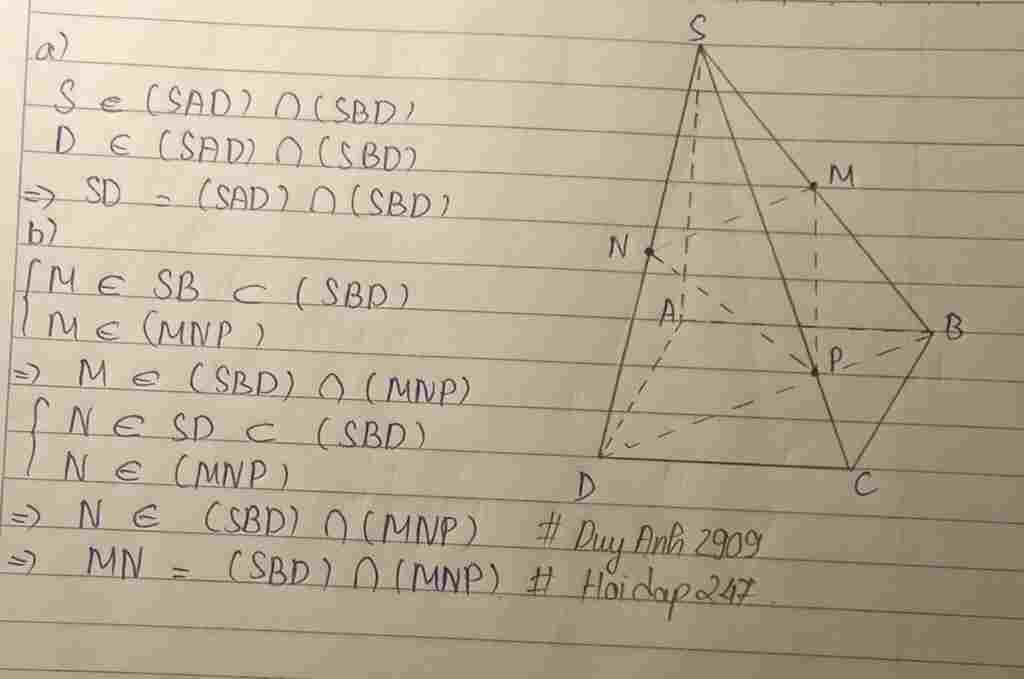 a)
S ∈ (SAD) ∩ (SBD)
D ∈ (SAD) ∩ (SBD)
=> SD = (SAD) ∩ (SBD)
b)
{ M ∈ SB ⊂ (SBD)
M ∈ (MNP)
=> M ∈ (SBD) ∩ (MNP)
{ N ∈ SD ⊂ (SBD)
N ∈ (MNP)
=> N ∈ (SBD) ∩ (MNP) # Duy Anh 2909
=> MN = (SBD) ∩ (MNP) # Hoidap247
S
M
N
A
B
P
D
C